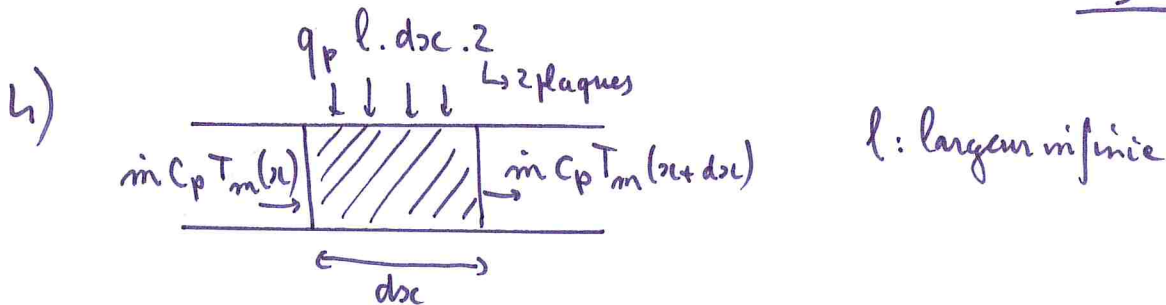 q_p l. dx . 2
↳ 2 plaques
4)
ṁ C_p T_m(x) → ṁ C_p T_m(x+dx)
l : largeur infinie
dx